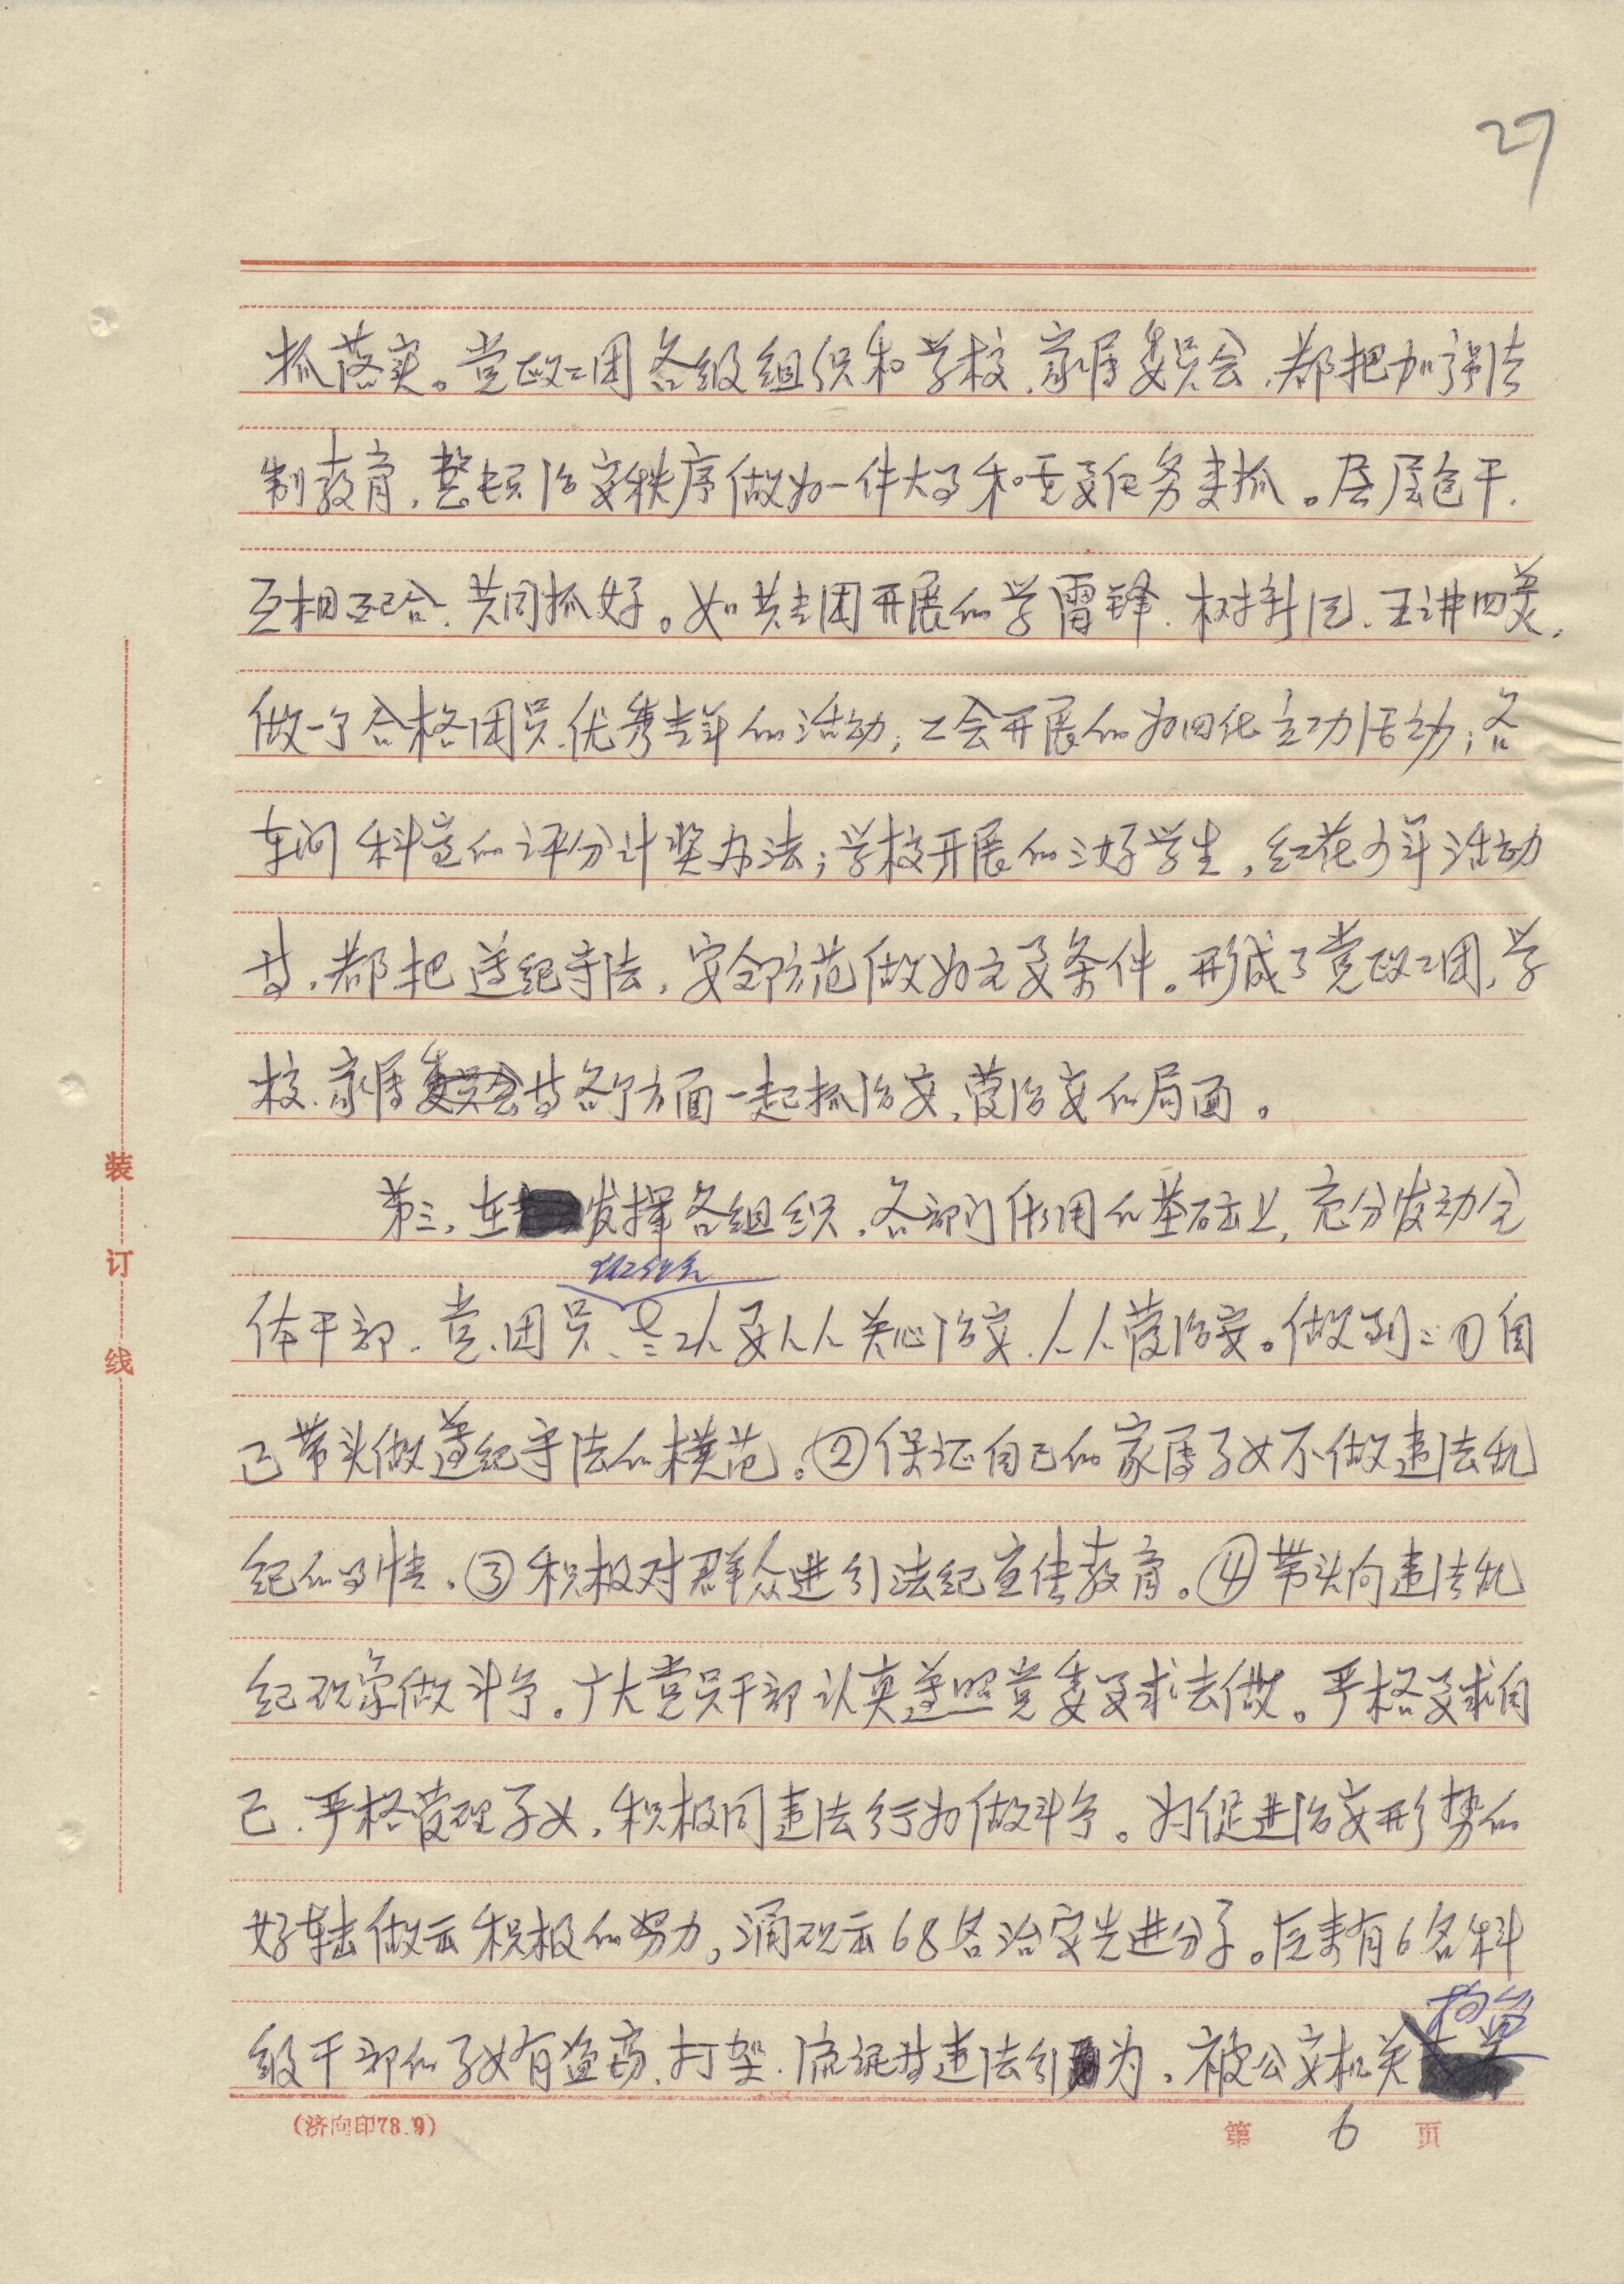 27
抓落实。党政工团各级组织和学校、家属委员会,都把加强法
制教育,整顿治安秩序做为一件大事和重要任务来抓。层层包干、
互相配合、共同抓好。如共青团开展的学雷锋、树新风、五讲四美、
做一个合格团员、优秀青年的活动;工会开展的为四化立功活动;各
车间科室的评分计奖办法;学校开展的三好学生,红花少年活动
等,都把遵纪守法,安全防范做为主要条件。形成了党政工团、学
校、家属委员会等各个方面一起抓治安,管治安的局面。
第三,在发挥各组织、各部门作用的基础上,充分发动全
体干部、党、团员、老工人要人人关心治安、人人管治安。做到:①自
己带头做遵纪守法的模范。②保证自己的家属子女不做违法乱
纪的事情。③积极对群众进行法纪宣传教育。④带头向违法乱
纪现象做斗争。广大党员干部认真遵照党委要求去做。严格要求自
己、严格管理子女,积极同违法行为做斗争。为促进治安形势的
好转做出积极的努力,涌现出68名治安先进分子。原来有6名科
级干部的子女有盗窃、打架、流氓等违法行为,被公安机关
拘留
装
订
线
(济向印78.9)
第 6 页